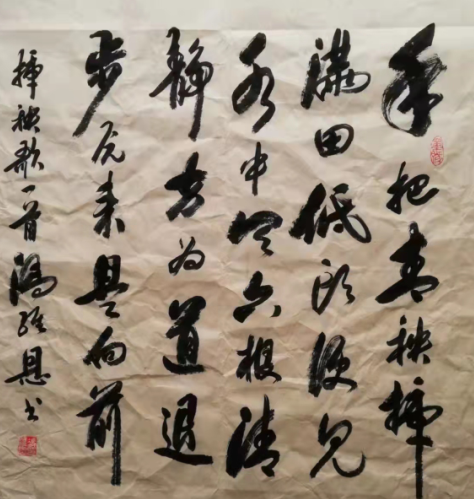 手把青秧插
满田低头便见
水中天六根清
静方为道退
步元来是向前
插秧歌一首恩书